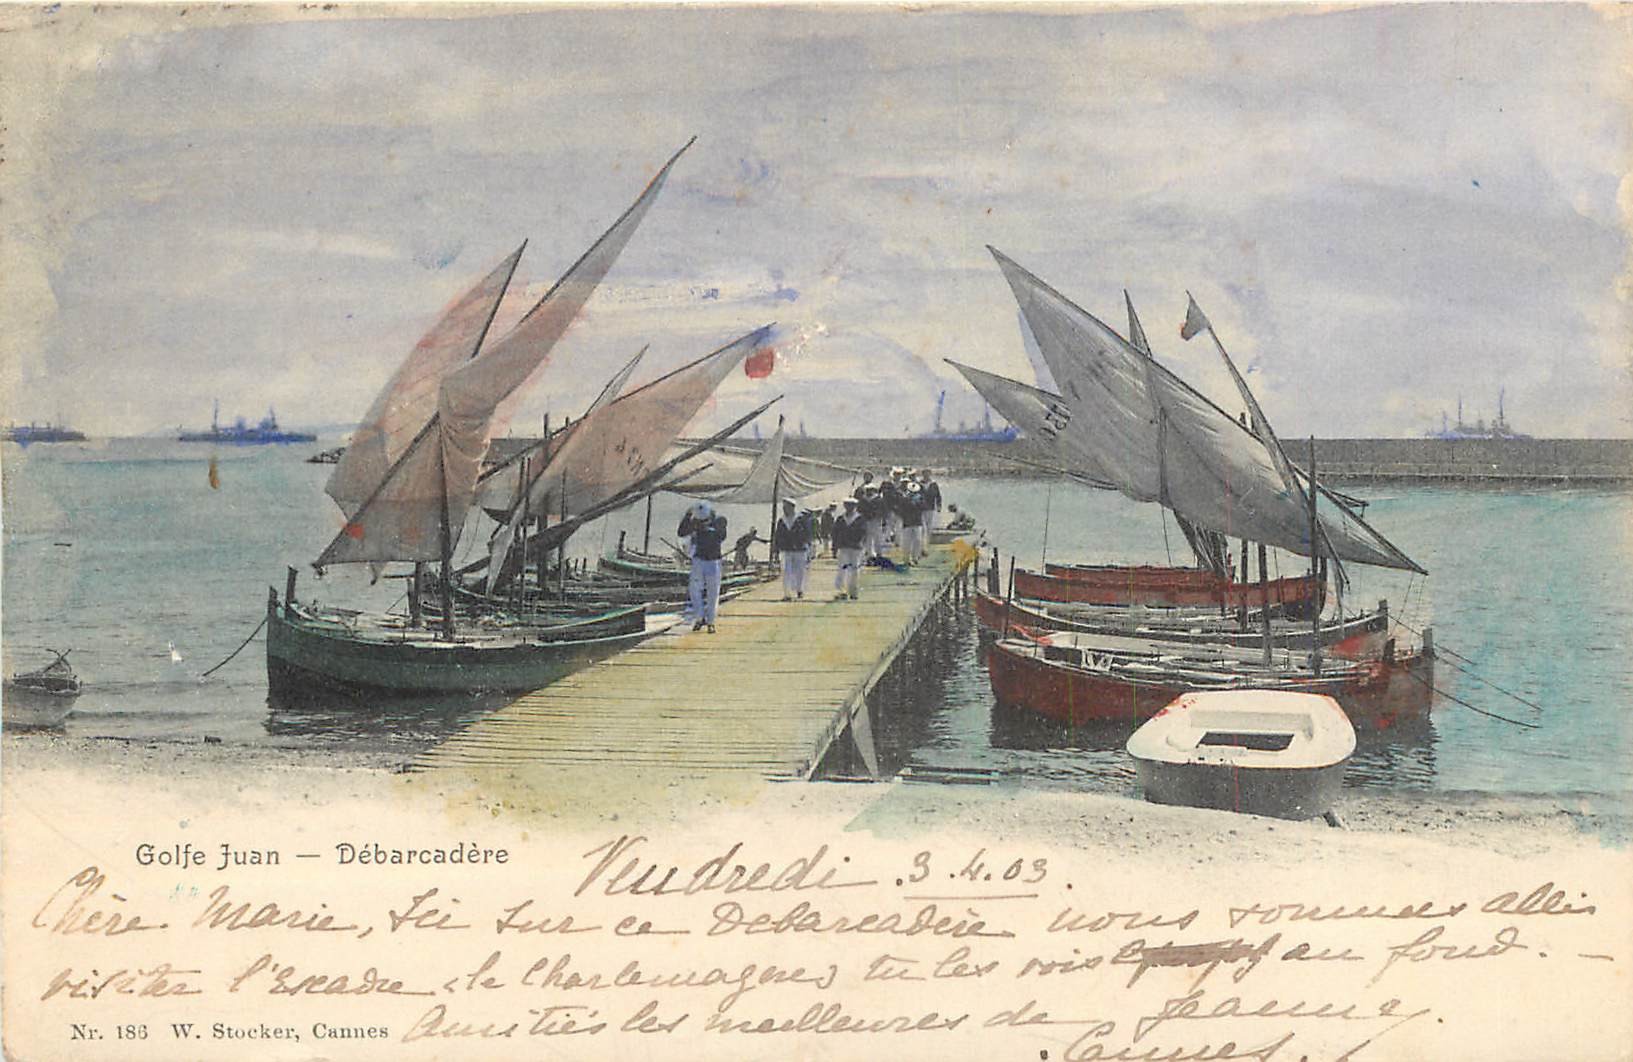 Golfe Juan — Débarcadère
Vendredi .3.4.03.
Chère Marie, Ici sur ce Débarcadère nous sommes allés
visiter l'Escadre (le Charlemagne) tu les vois au fond. —
Nr. 186 W. Stocker, Cannes
Amitiés les meilleures de Jeanne.
Cannes.